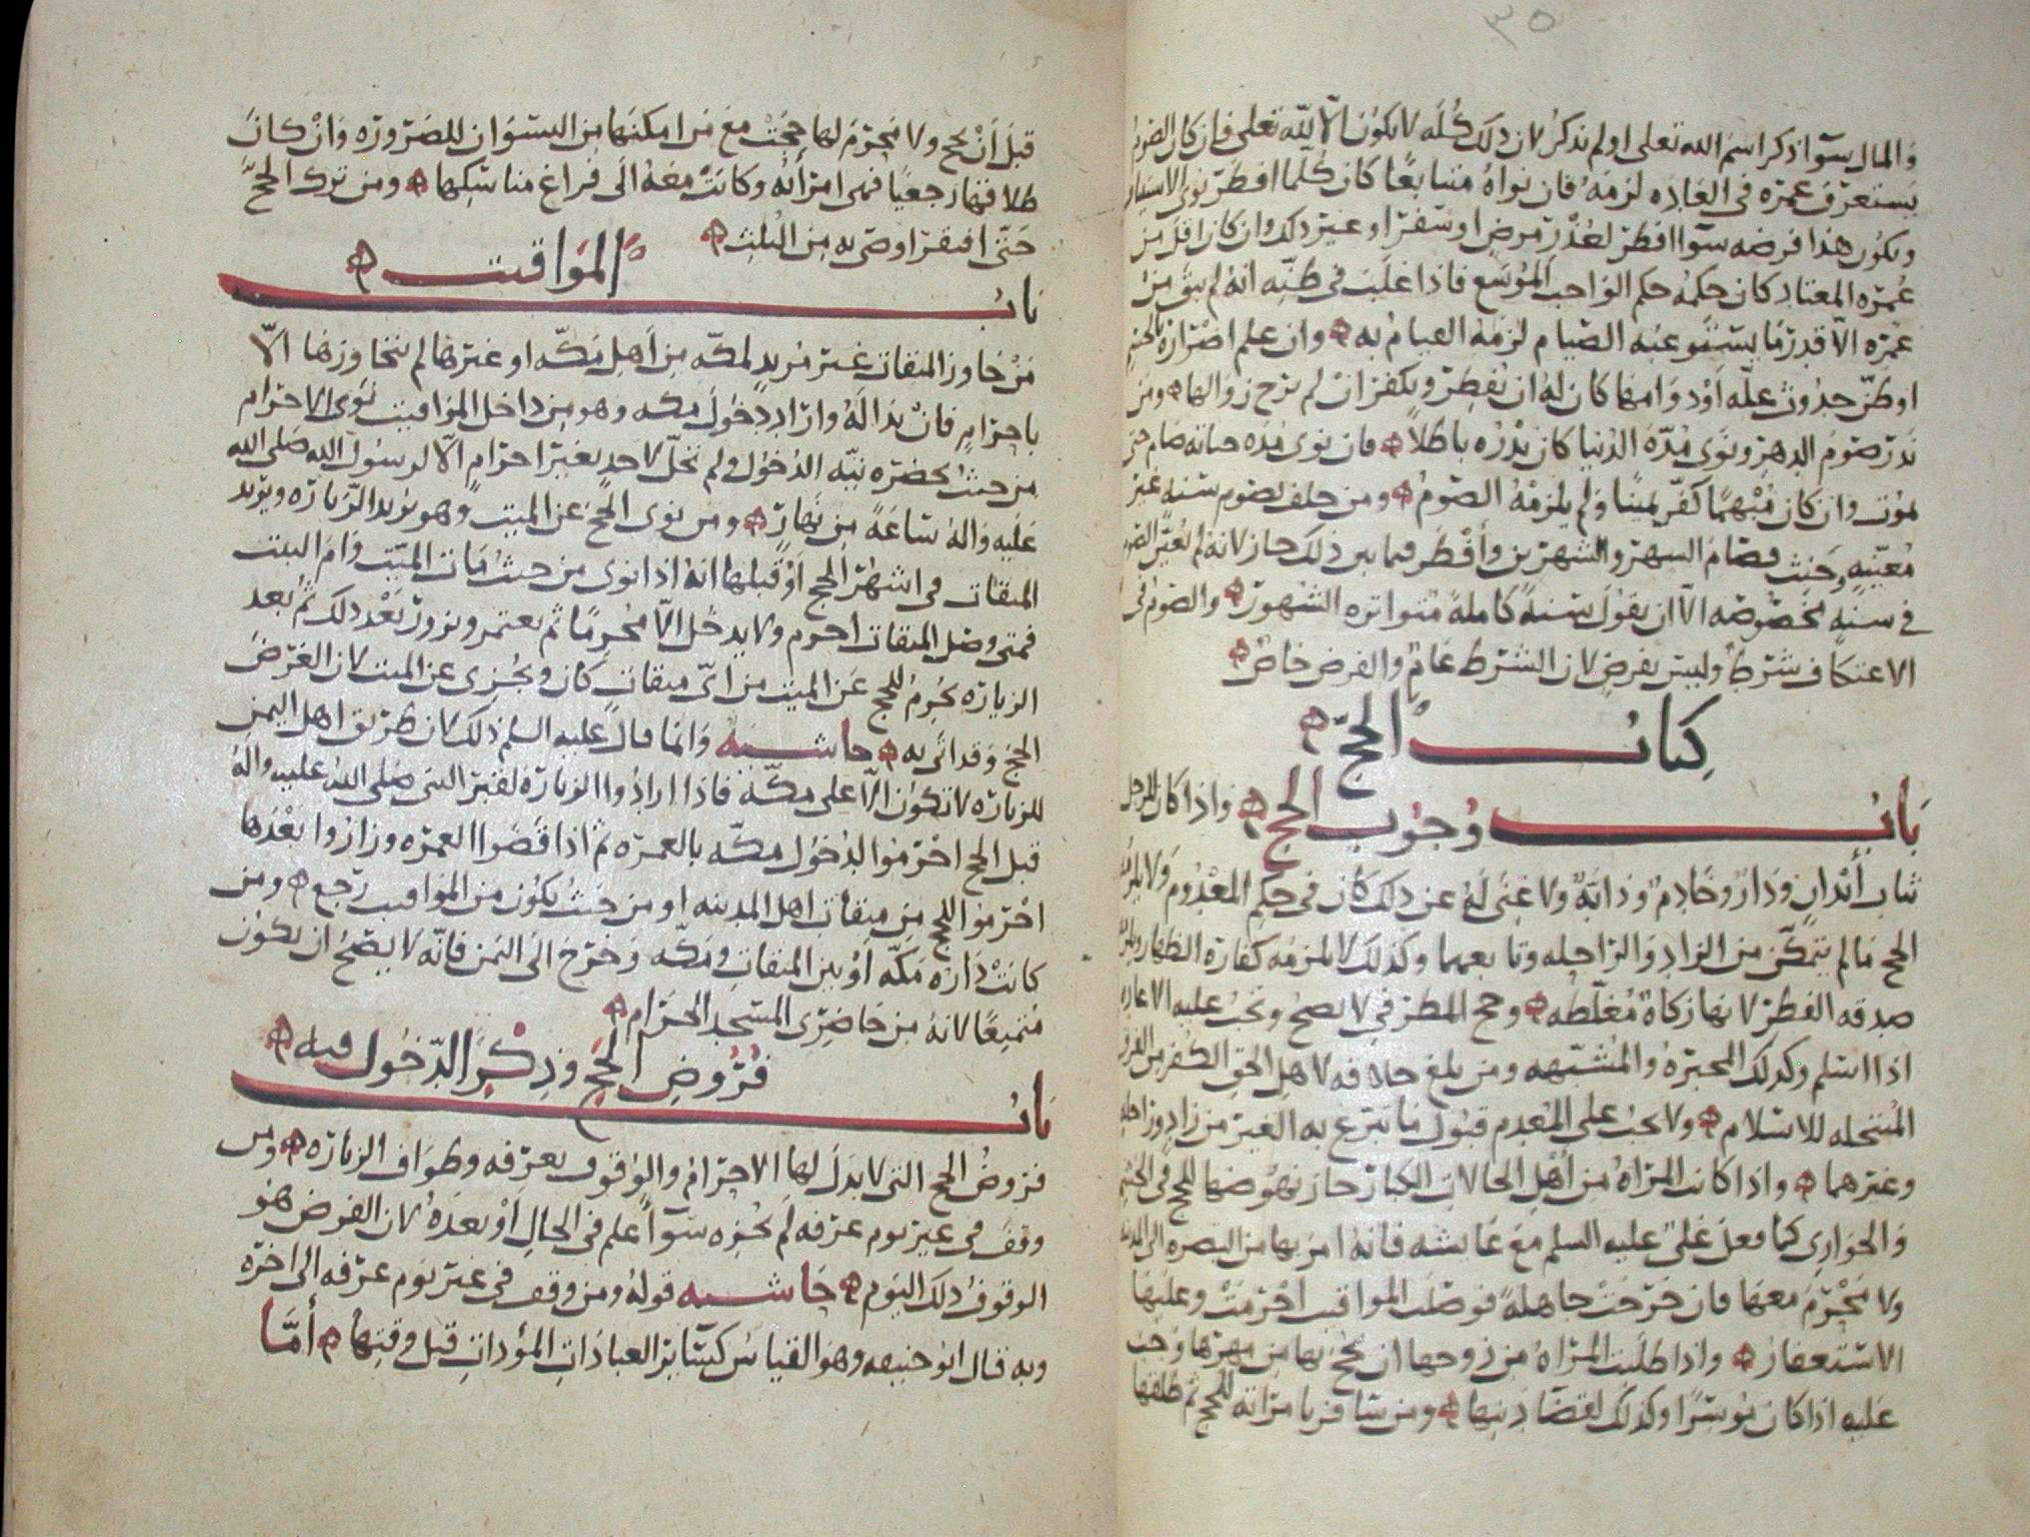 ٣٥
والمال سوا ذكر اسم الله تعلى او لم يذكر لان ذلك كله لا يكون الا لله تعلى فان كان الصوم
يستغرق عمره في العاده لزمه فان نواه متتابعا كان كلما افطر نوى
ويكون هذا فرضه سوا افطر لعذر مرض او سفر او غير ذلك وان كان اقل من
عمره المعتاد كان حكمه حكم الواجب الموسع فاذا غلب في ظنه انه لم يبق من
عمره الا قدر ما يستوعبه الصيام لزمه القيام به وان علم اضراره
او ظن حدوث عله او دوامها كان له ان يفطر ويكفر ان لم يرج زوالها ومن
نذر صوم الدهر ونوى مده الدنيا كان نذره باطلا فان نوى مده حياته صام حتى
يموت وان كان مبهما كفر يمينا ولم يلزمه الصوم ومن حلف لصوم سنه غير
معينه وحنث فصام الشهر والشهرين وأفطر فيما بين ذلك جاز لانه لم يعين
في سنه مخصوصه الا ان يقول سنة كاملة متواتره الشهور والصوم في
الاعتكاف شرط وليس بفرض لان الشرط عام والفرض خاص
كتاب الحج
باب وجوب الحج واذا كان للرجل
ثياب أبدان ودار وخادم ودابة ولا غنى له عن ذلك كان في حكم المعدوم ولا يلزمه
الحج ما لم يتمكن من الزاد والراحله وتابعهما وكذلك لا يلزمه كفارة الظهار
صدقه الفطر لانها زكاة مغلظه وحج المطرفي لا يصح وتجب عليه الاعاده
اذا اسلم وكذلك المجبره والمشبهه ومن بلغ خلافه لاهل الحق الكفر من الفرق
المنتحله للاسلام ولا يجب على المعدم قبول ما تبرع به الغير من زاد وراحله
وغيرهما واذا كانت المراه من أهل الحالات الكبار جاز نهوضها للحج في الخدم
والجواري كما فعل علي عليه السلم مع عايشه فانه امر بها من البصره الى المدينه
ولا محرم معها فان خرجت جاهلة فوصلت المواقيت احرمت وعليها
الاستغفار واذا طلبت المراه من زوجها ان يحج بها من مهرها وجب
عليه اذا كان موسرا وكذلك لقضا دينها ومن سافر بامراته للحج ثم طلقها
قبل أن يحج ولا محرم لها حجت مع من امكنها من النسوان للضروره وان كان
طلاقها رجعيا فهي امرأته وكانت معه الى فراغ مناسكها ومن ترك الحج
حتى افتقر اوصى به من الثلث
باب المواقيت
من جاوز الميقات غير مريد لمكه من أهل مكه او غيرها لم يتجاوزها الا
باحرام فان بدا له واراد دخول مكه وهو من داخل المواقيت نوى الاحرام
من حيث تحضره نيه الدخول ولم تحل لاحد بغير احرام الا لرسول الله صلى الله
عليه واله ساعة من نهار ومن نوى الحج عن الميت وهو يريد الزياره ويريد
الميقات في اشهر الحج او قبلها انه اذا نوى من حيث مات الميت وام البيت
فمتى وصل الميقات احرم ولا يدخل الا محرما ثم يعتمر ويزور بعد ذلك ثم بعد
الزياره يحرم للحج عن الميت من اي ميقات كان ويجزي عن الميت لان الغرض
الحج وقد اتى به حاشيه وانما قال عليه السلم ذلك لان طريق اهل اليمن
للزياره لا تكون الا على مكه فاذا ارادوا الزيارة لقبر النبي صلى الله عليه واله
قبل الحج احرموا لدخول مكه بالعمره ثم اذا قضوا العمره وزاروا بعدها
احرموا للحج من ميقات اهل المدينه او من حيث يكون من المواقيت رجع ومن
كانت داره مكه أو بين الميقات ومكه وخرج الى اليمن فانه لا يصح ان يكون
متمتعا لانه من حاضري المسجد الحرام
باب فروض الحج وذكر الدخول فيه
فروض الحج التي لا بدل لها الاحرام والوقوف بعرفه وطواف الزياره ومن
وقف في غير يوم عرفه لم يجزه سوا علم في الحال أو بعده لان الفرض هو
الوقوف ذلك اليوم حاشيه قوله ومن وقف في غير يوم عرفه الى اخره
وبه قال ابو حنيفه وهو القياس كسائر العبادات المؤدات قبل وقتها أما